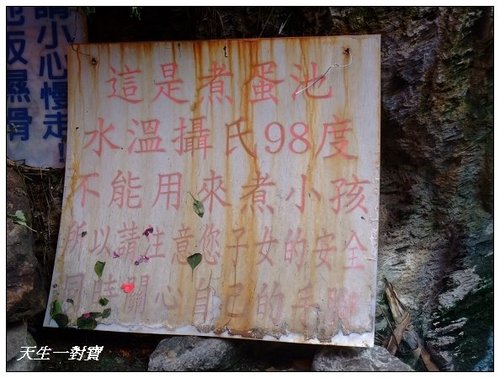 這是煮蛋池
水溫攝氏98度
不能用來煮小孩
所以請注意您子女的安全
同時關心自己的手腳
請小心慢走!
地板濕滑
天生一對寶